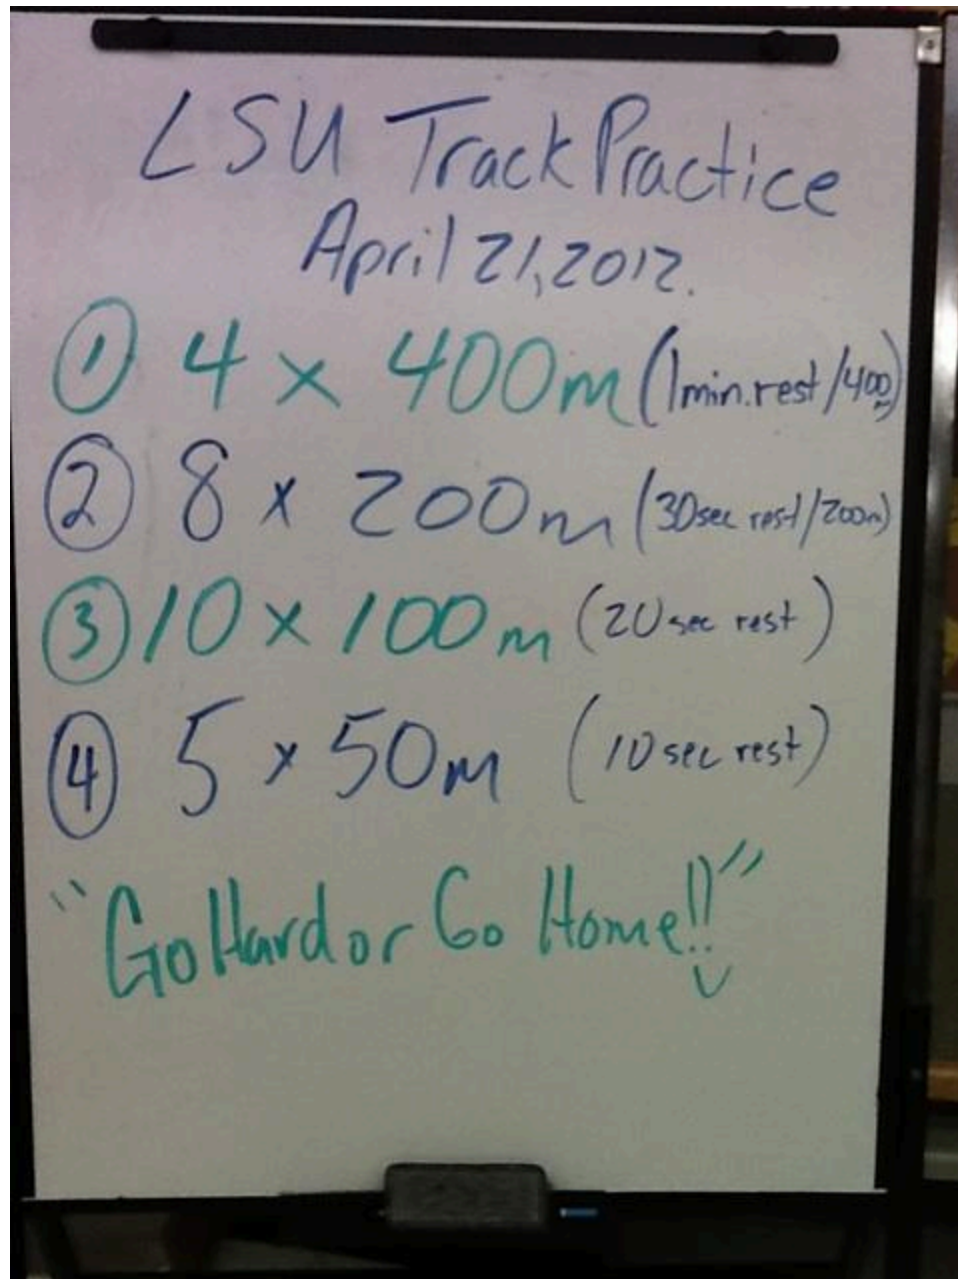 LSU Track Practice
April 21, 2012.
① 4 x 400m (1min. rest/400m)
② 8 x 200m (30sec rest/200m)
③ 10 x 100m (20 sec rest)
④ 5 x 50m (10 sec rest)
"Go Hard or Go Home!!"